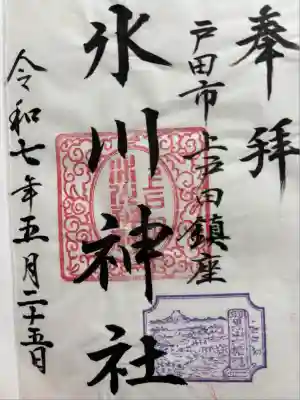 奉拝
戸田市 上戸田鎮座
氷川神社
令和七年五月二十五日